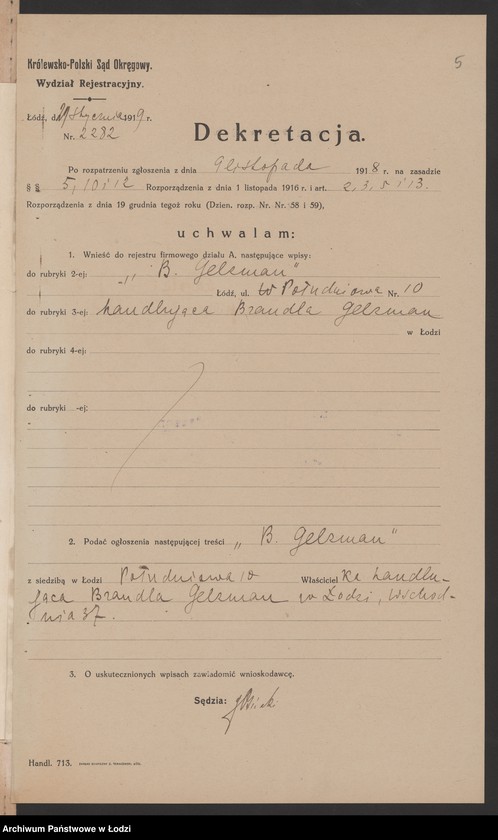 5
Królewsko-Polski Sąd Okręgowy.
Wydział Rejestracyjny.
Łódź, d. 29 stycznia 1919 r.
Nr. 2282
Dekretacja.
Po rozpatrzeniu zgłoszenia z dnia 9 listopada 1918 r. na zasadzie
§ § 5, 10 i 12 Rozporządzenia z dnia 1 listopada 1916 r. i art. 2, 3, 5 i 13.
Rozporządzenia z dnia 19 grudnia tegoż roku (Dzien. rozp. Nr. Nr. 58 i 59),
uchwalam:
1. Wnieść do rejestru firmowego działu A. następujące wpisy:
do rubryki 2-ej: „B. Gelzman"
Łódź, ul. Południowa Nr. 10
do rubryki 3-ej: handlująca Brandla Gelzman
w Łodzi
do rubryki 4-ej:
do rubryki -ej:
2. Podać ogłoszenia następującej treści „B. Gelzman"
z siedzibą w Łodzi Południowa 10 Właściciel ka handlu-
jąca Brandla Gelzman w Łodzi, Wschod-
nia 37.
3. O uskutecznionych wpisach zawiadomić wnioskodawcę.
Sędzia:
Handl. 713.
Archiwum Państwowe w Łodzi